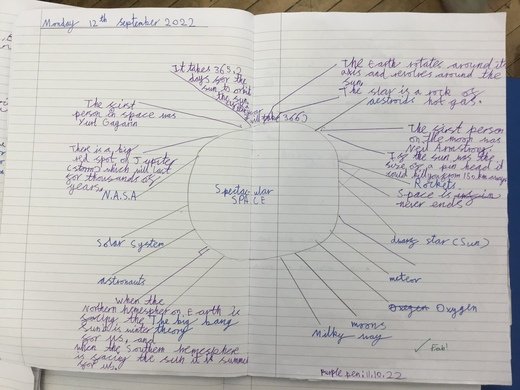 Monday 12th september 2022
It takes 365.2
days for the
sun to orbit
the sun.
will take (366)
The Earth rotates around its
axis and revolves around the
sun.
The star is a rock of
aestroids hot gas.
The first
person in space was
Yuri Gagarin
The first person
on the moon was
Neil Armstrong.
If the sun was the
size of a pin head it
could kill you from 150 km away.
There is a big
red spot of Jupiter
(storm) which will last
for thousands of
years.
N.A.S.A
Rockets
Space is
never ends
Spectacular
SPACE
Solar System
star (Sun)
astronauts
meteor
Oxygen
moons
Milky way
When the
Northern hemisphere on Earth is
facing the The big bang
Sun it is winter theory
for us, and
when the Southern hemesphere
is facing the sun it is summer
for us.
Purple pen 11.10.22